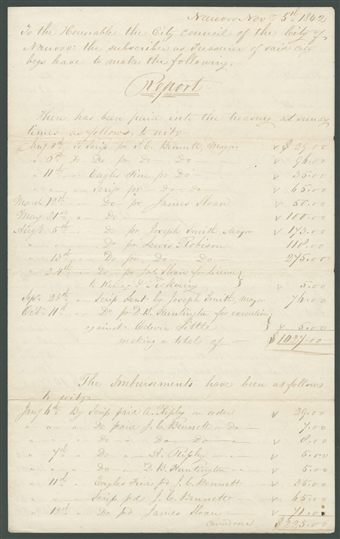 Nauvoo Nov 5th 1842
To the Honorable the City council of the City of
Nauvoo the subscriber as Treasurer of said city
begs leave to make the following.
Report
There has been paid into the treasury at sundry
times as follows to wit
Jany 1st To Scrip pr J. C. Bennett, Mayor
" 5th To Do pr Do Do 96.00
" 11th " Eagles Fire pr Do 35.00
" " " Scrip pr Do 65.00
March 12th " Do pr James Sloan 50.00
May 21st " Do 100.00
Augt 5th Do pr Joseph Smith Mayor 173.00
" " Do pr Lewis Robison 118.00
" 13th " Do pr Do Do 275.00
" Do pr Jas Sloan for
to 5.00
Sept Scrip sent by Joseph Smith, Mayor 76.00
Octr 11th " Do pr D. B. Huntington for execution
against Edwin Little 5.00
making a total of $1027.00
The Imbursements have been as follows
to wit
Jany 6th By Scrip paid A. Ripley on order 29.00
" " " Do paid J. C. Bennett Do 7.00
" " " Do Do Do 8.00
" 7th " Do A. Ripley 5.00
" " " Do D. B. Huntington 5.00
" 11th " Eagles Fire pd J. C. Bennett 35.00
" " " Scrip pd J. C. Bennett 65.00
" Do pd James Sloan 71.00
$225.00